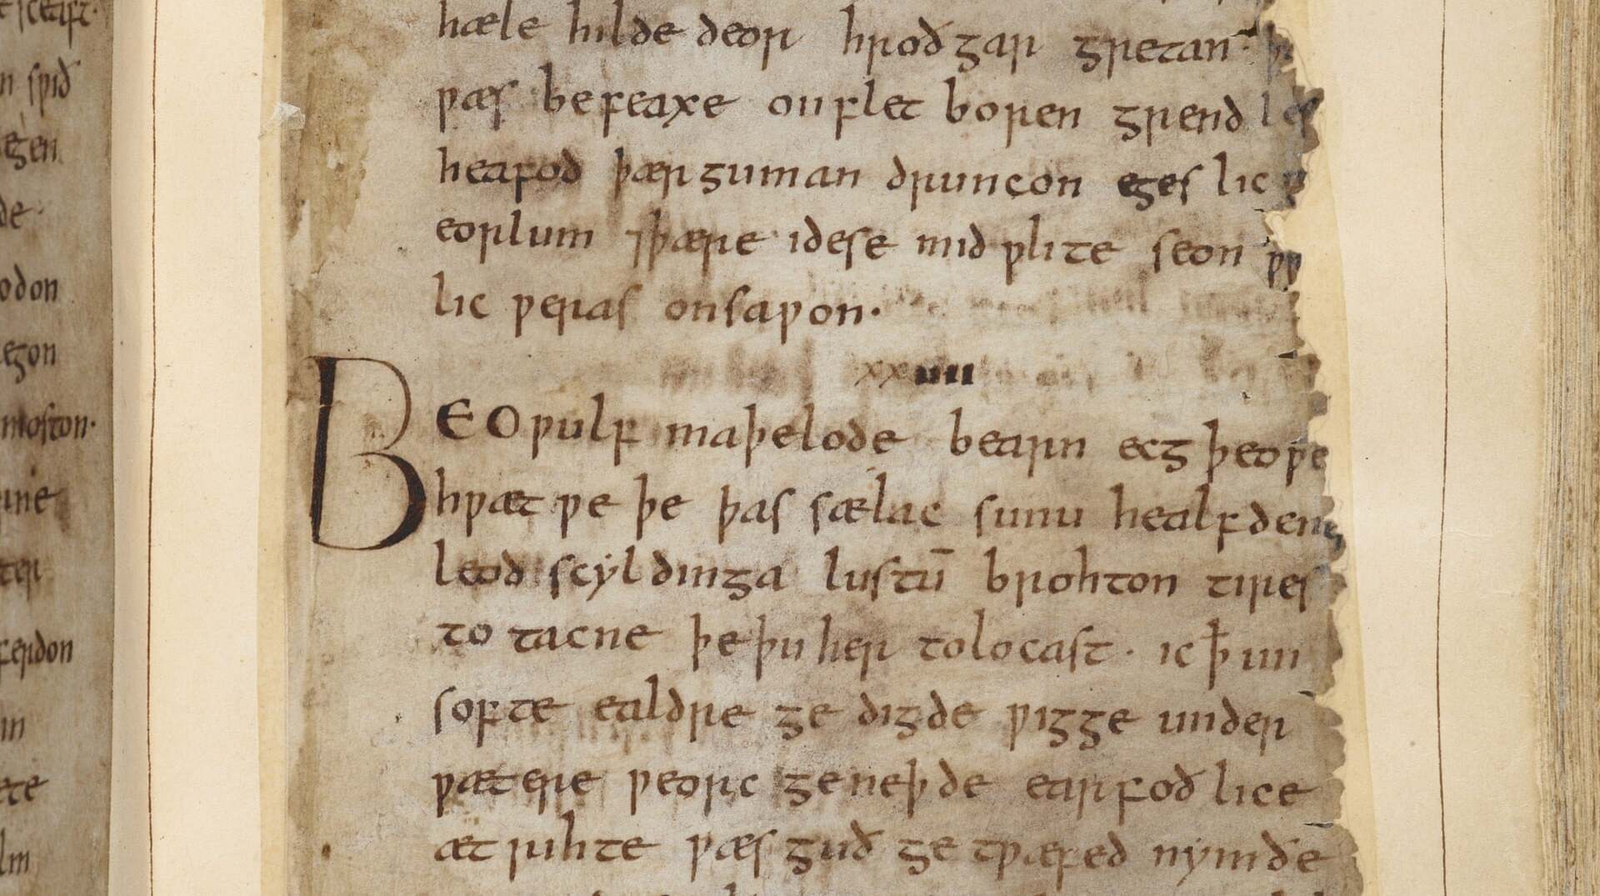 hæle hilde deor hroð gar gretan þa
ƿæs be feaxe on flet boren grend les
heafod þær guman druncon eges lic
eorlum ⁊ þære idese mid ƿlite seon ƿr
lic ƿeras onsaƿon·
xxiiii
BEOǷulf maþelode bearn ecg þeoƿe
hƿæt ƿe þe þas sælac sunu healfdene
leod scyldinga lustū brohton tires
to tacne þe þu her to locast · ic ꝥ un
softe ealdre ge digde ƿigge under
ƿætere ƿeorc ge neþde earfoð lice
æt rihte ƿæs guð ge tƿæfed nymðe
sceaft·
sƿið
egen
de·
odon
egon
moston·
ter
ferdon
in
ete
lm